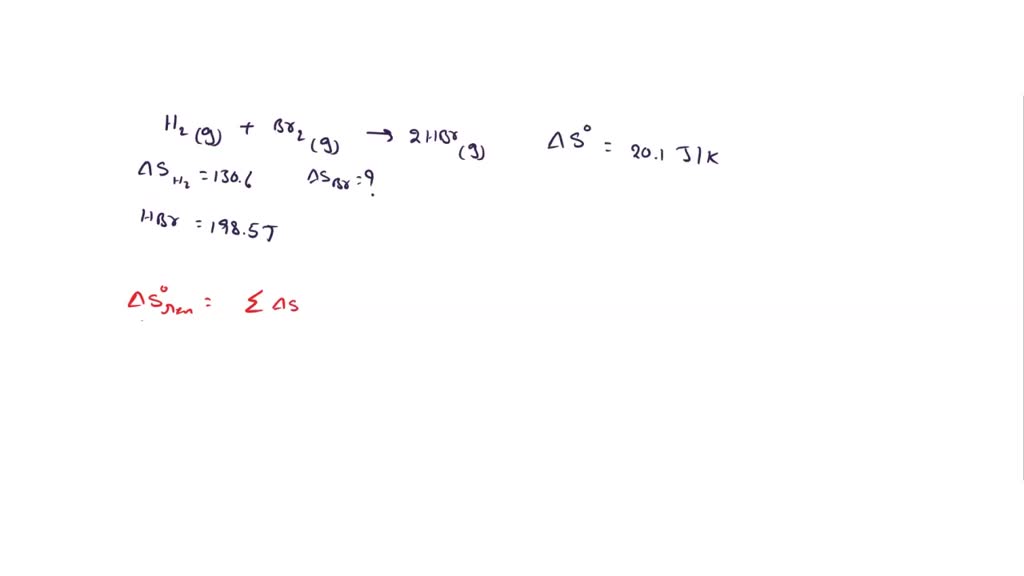 H₂(g) + Br₂(g) → 2HBr(g) ΔS° = 20.1 J/K
ΔS_H₂ = 130.6 ΔS_Br = ?
HBr = 198.5J
ΔS°rxn = Σ ΔS